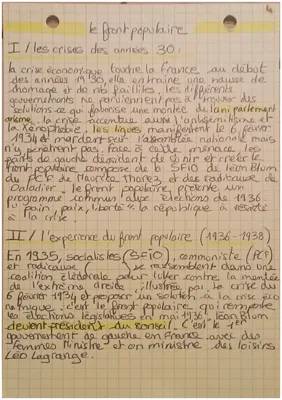 4
le front populaire
I / les crises des années 30:
la crise économique touche la France au début
des années 1930, elle entraine une hausse de
chomage et de nb faillites, les différents
gouvernements ne parviennent pas à trouver des
solutions ce qui favorise une montée de l'anti parlement
arisme. la crise accentue aussi l'antisémitisme et
la xénophobie, les ligues manifestent le 6 février
1934 et marchent sur l'assemblée nationale mais
n'y pas face à cette menace, les
partis de gauche décident de s'unir et créer le
front populaire composé de la SFIO de Léon Blum
du PCF de Maurice Thorez, et des radicaux de
Daladier. le front populaire présente un
programme commun aux elections de 1936
"pain, paix, liberté" la république à résisté
à la crise.
II / l'experience du front populaire (1936-1938)
En 1935, socialistes (SFIO), communiste (PCF)
et radicaux se rassemblent dans une
coalition éléctorale pour lutter contre la montée
de l'extrême droite, illustrée par la crise du
6 février 1934 et proposer une solution à la crise éco
nomique. c'est le front populaire qui remporte
les élections législatives en mai 1936, léon Blum
devient président du conseil. C'est le 1er
gouvernement de gauche en France avec des
femmes ministre et un ministre des loisirs
Léo Lagrange.